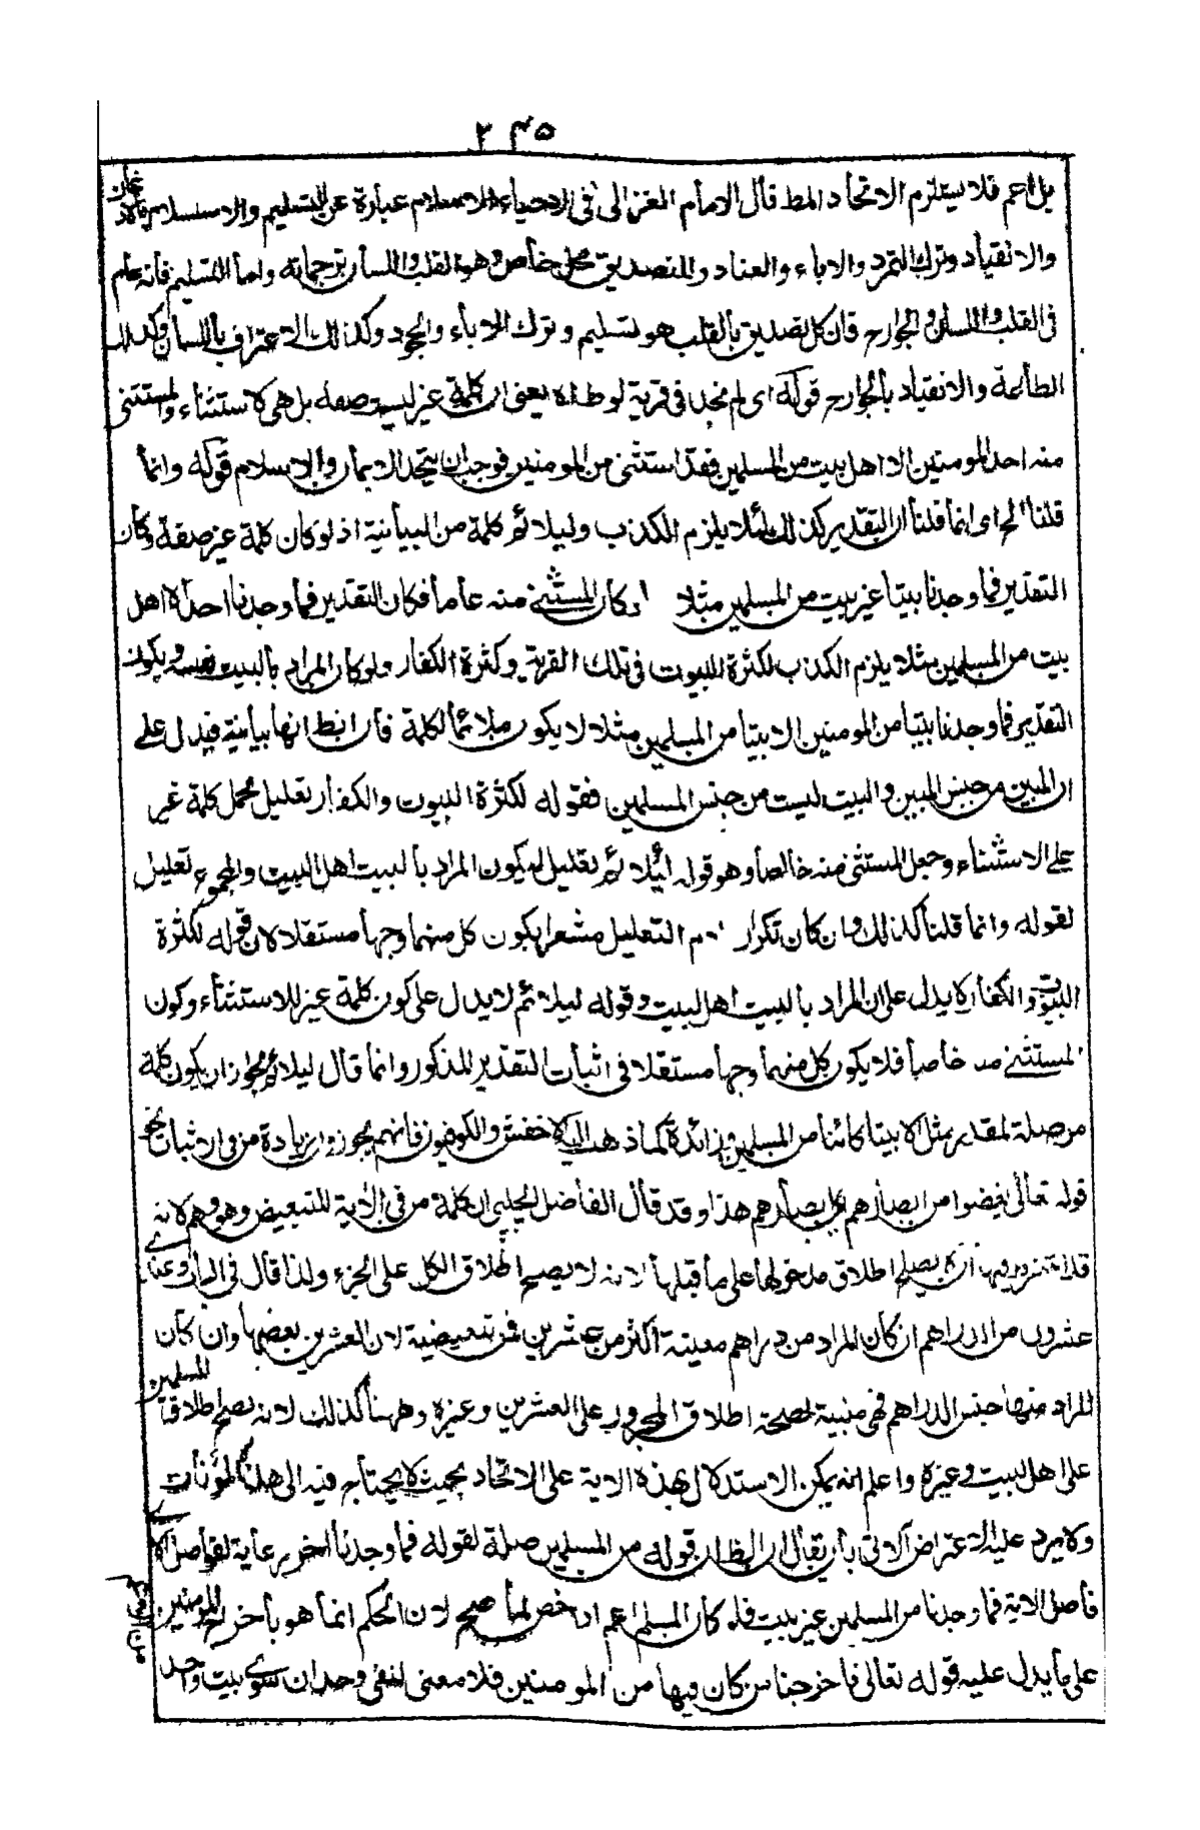 ۲۴۵
بل اعم فلا يستلزم الاتحاد المط قال الامام الغزالى فى الاحياء الاسلام عبارة عن التسليم والاستسلام بالاذعان
والانقياد وترك التمرد والاباء والعناد وللتصديق محل خاص وهو القلب واللسان ترجمانه واما التسليم فانه عام
فى القلب واللسان والجوارح فان كل تصديق بالقلب هو تسليم وترك الاباء والجحود وكذلك الاعتراف باللسان وكذلك
الطاعة والانقياد بالجوارح قوله اى لم نجد فى قرية لوط اه يعنى ان كلمة غير ليست صفة بل هى كاستثناء والمستثنى
منه احد المومنين الا اهل بيت من المسلمين فقد استثنى من المومنين فوجب ان يتحد الايمان والاسلام قوله وانما
قلنا الخ اى انما قلنا ان التقدير كذلك لئلا يلزم الكذب وليلائم كلمة من البيانية اذ لو كان كلمة غير صفة وكان
التقدير فما وجدنا بيتا غير بيت من المسلمين مثلا او كان المستثنى منه عاما فكان التقدير فما وجدنا احدا الا اهل
بيت من المسلمين مثلا يلزم الكذب لكثرة البيوت فى تلك القرية وكثرة الكفار ولو كان المراد بالبيت نفسه ويكون
التقدير فما وجدنا بيتا من المومنين الا بيتا من المسلمين مثلا لا يكون ملائما لكلمة فان الظ انها بيانية فيدل على
ان المبين من جنس المبين والبيت ليست من جنس المسلمين فقوله لكثرة البيوت والكفار تعليل محمل كلمة غير
على الاستثناء وجعل المستثنى منه خالصا وهو قوله ليلائم تعليل ليكون المراد بالبيت اهل البيت والمجموع تعليل
لقوله وانما قلنا كذلك وان كان تكرار لام التعليل مشعرا بكون كل منهما وجها مستقلا لان قوله لكثرة
البيوت والكفار لا يدل على ان المراد بالبيت اهل البيت وقوله ليلائم لا يدل على كون كلمة غير للاستثناء وكون
المستثنى منه خاصا فلا يكون كل منهما وجها مستقلا فى اثبات التقدير المذكور وانما قال ليلائم لجواز ان يكون كلمة
من صلة لمقدر مثل الا بيتا كائنا من المسلمين وزائدة كما ذهب اليه الاخفش والكوفيون فانهم يجوزون زيادة من فى الاثبات نحو
قوله تعالى يغضوا من ابصارهم اى ابصارهم هذا وقد قال الفاضل الچلپى ان كلمة من فى الاية للتبعيض وهو وهم لانه
اطلاق مدخولها على ما قبلها لانه لا يصح اطلاق الكل على الجزء ولذا قال فى
عشرون من الدراهم ان كان المراد من دراهم معينة اكثر من عشرين فمن تبعيضية لان العشرين بعضها وان كان
المراد منها جنس الدراهم فهى مبينة لصحة اطلاق المجرور على العشرين وغيره وههنا كذلك لانه يصح اطلاق المسلمين
على اهل البيت وغيره واعلم انه يمكن الاستدلال بهذه الاية على الاتحاد بحيث لا يحتاج فيه الى هذه المؤنات
ولا يرد عليه الاعتراض الاتى بان يقال ان الظ ان قوله من المسلمين صلة لقوله فما وجدنا اخر رعاية لفواصل الاى
فاصل الاية فما وجدنا من المسلمين غير بيت فلو كان المسلم اعم او اخص لما صح لان الحكم انما هو باخراج المومنين
على ما يدل عليه قوله تعالى فاخرجنا من كان فيها من المومنين فلا معنى لنفى وجدان سوى بيت واحد